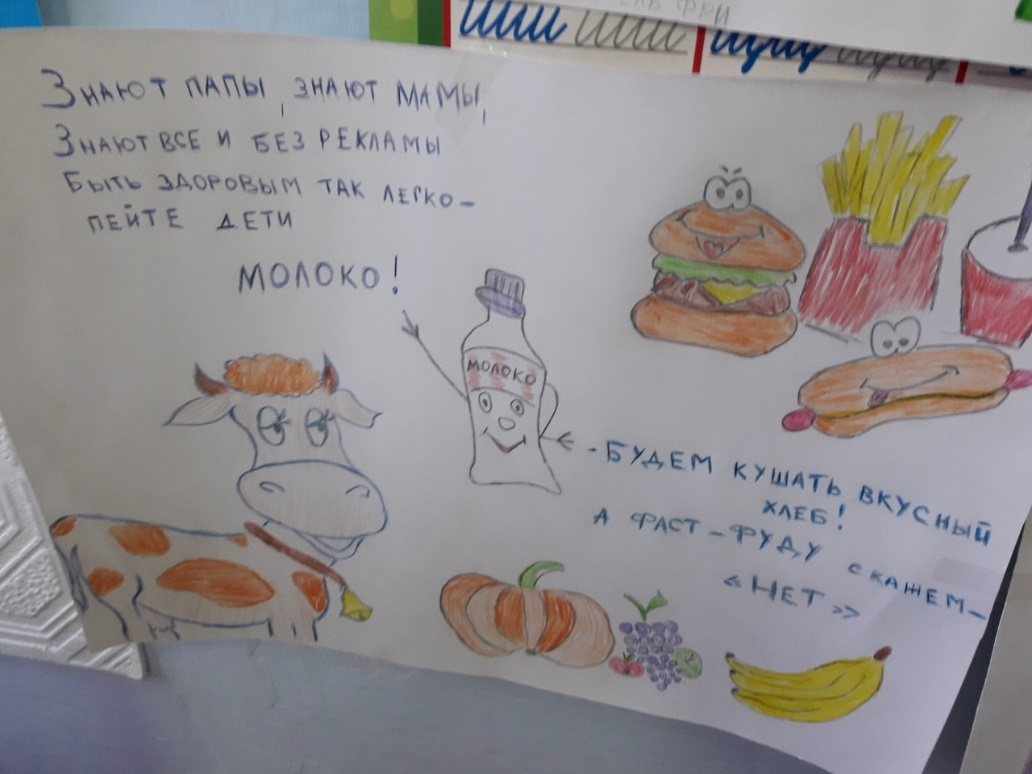 ЕЛЬ ФРИ
Знают папы, знают мамы,
Знают все и без рекламы
Быть здоровым так легко-
пейте дети
МОЛОКО!
МОЛОКО
-Будем кушать вкусный
хлеб!
А фаст-фуду скажем-
«НЕТ»